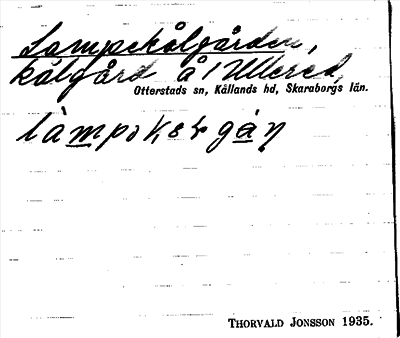 Lampekålgården,
kålgård å 1 Ullered,
Otterstads sn, Kållands hd, Skaraborgs län.
THORVALD JONSSON 1935.